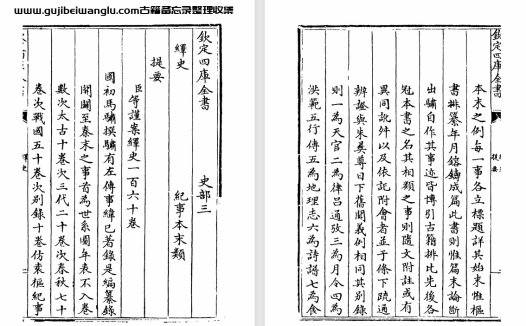 www.gujibeiwanglu.com古籍备忘录整理收集
欽定四庫全書 史部三
繹史 紀事本末類
提要
臣等謹案繹史一百六十卷
國初馬驌撰驌有左傳事緯已著錄是編纂錄
開闢至秦末之事首為世系圖年表不入卷
數次太古十卷次三代二十卷次春秋七十
卷次戰國五十卷次別錄十卷仿袁樞紀事
繹史
欽定四庫全書
提要
本末之例每一事各立標題詳其始末惟樞
書排纂年月鎔鑄成篇此書則惟篇末論斷
出驌自作其事迹皆博引古籍排比先後各
冠本書之名其相類之事則隨文附註或有
異同訛舛以及依託附會者並于條下疏通
辨證與朱彝尊日下舊聞義例相同其別錄
則一為天官二為律呂通攷三為月令四為
洪範五行傳五為地理志六為詩譜七為食